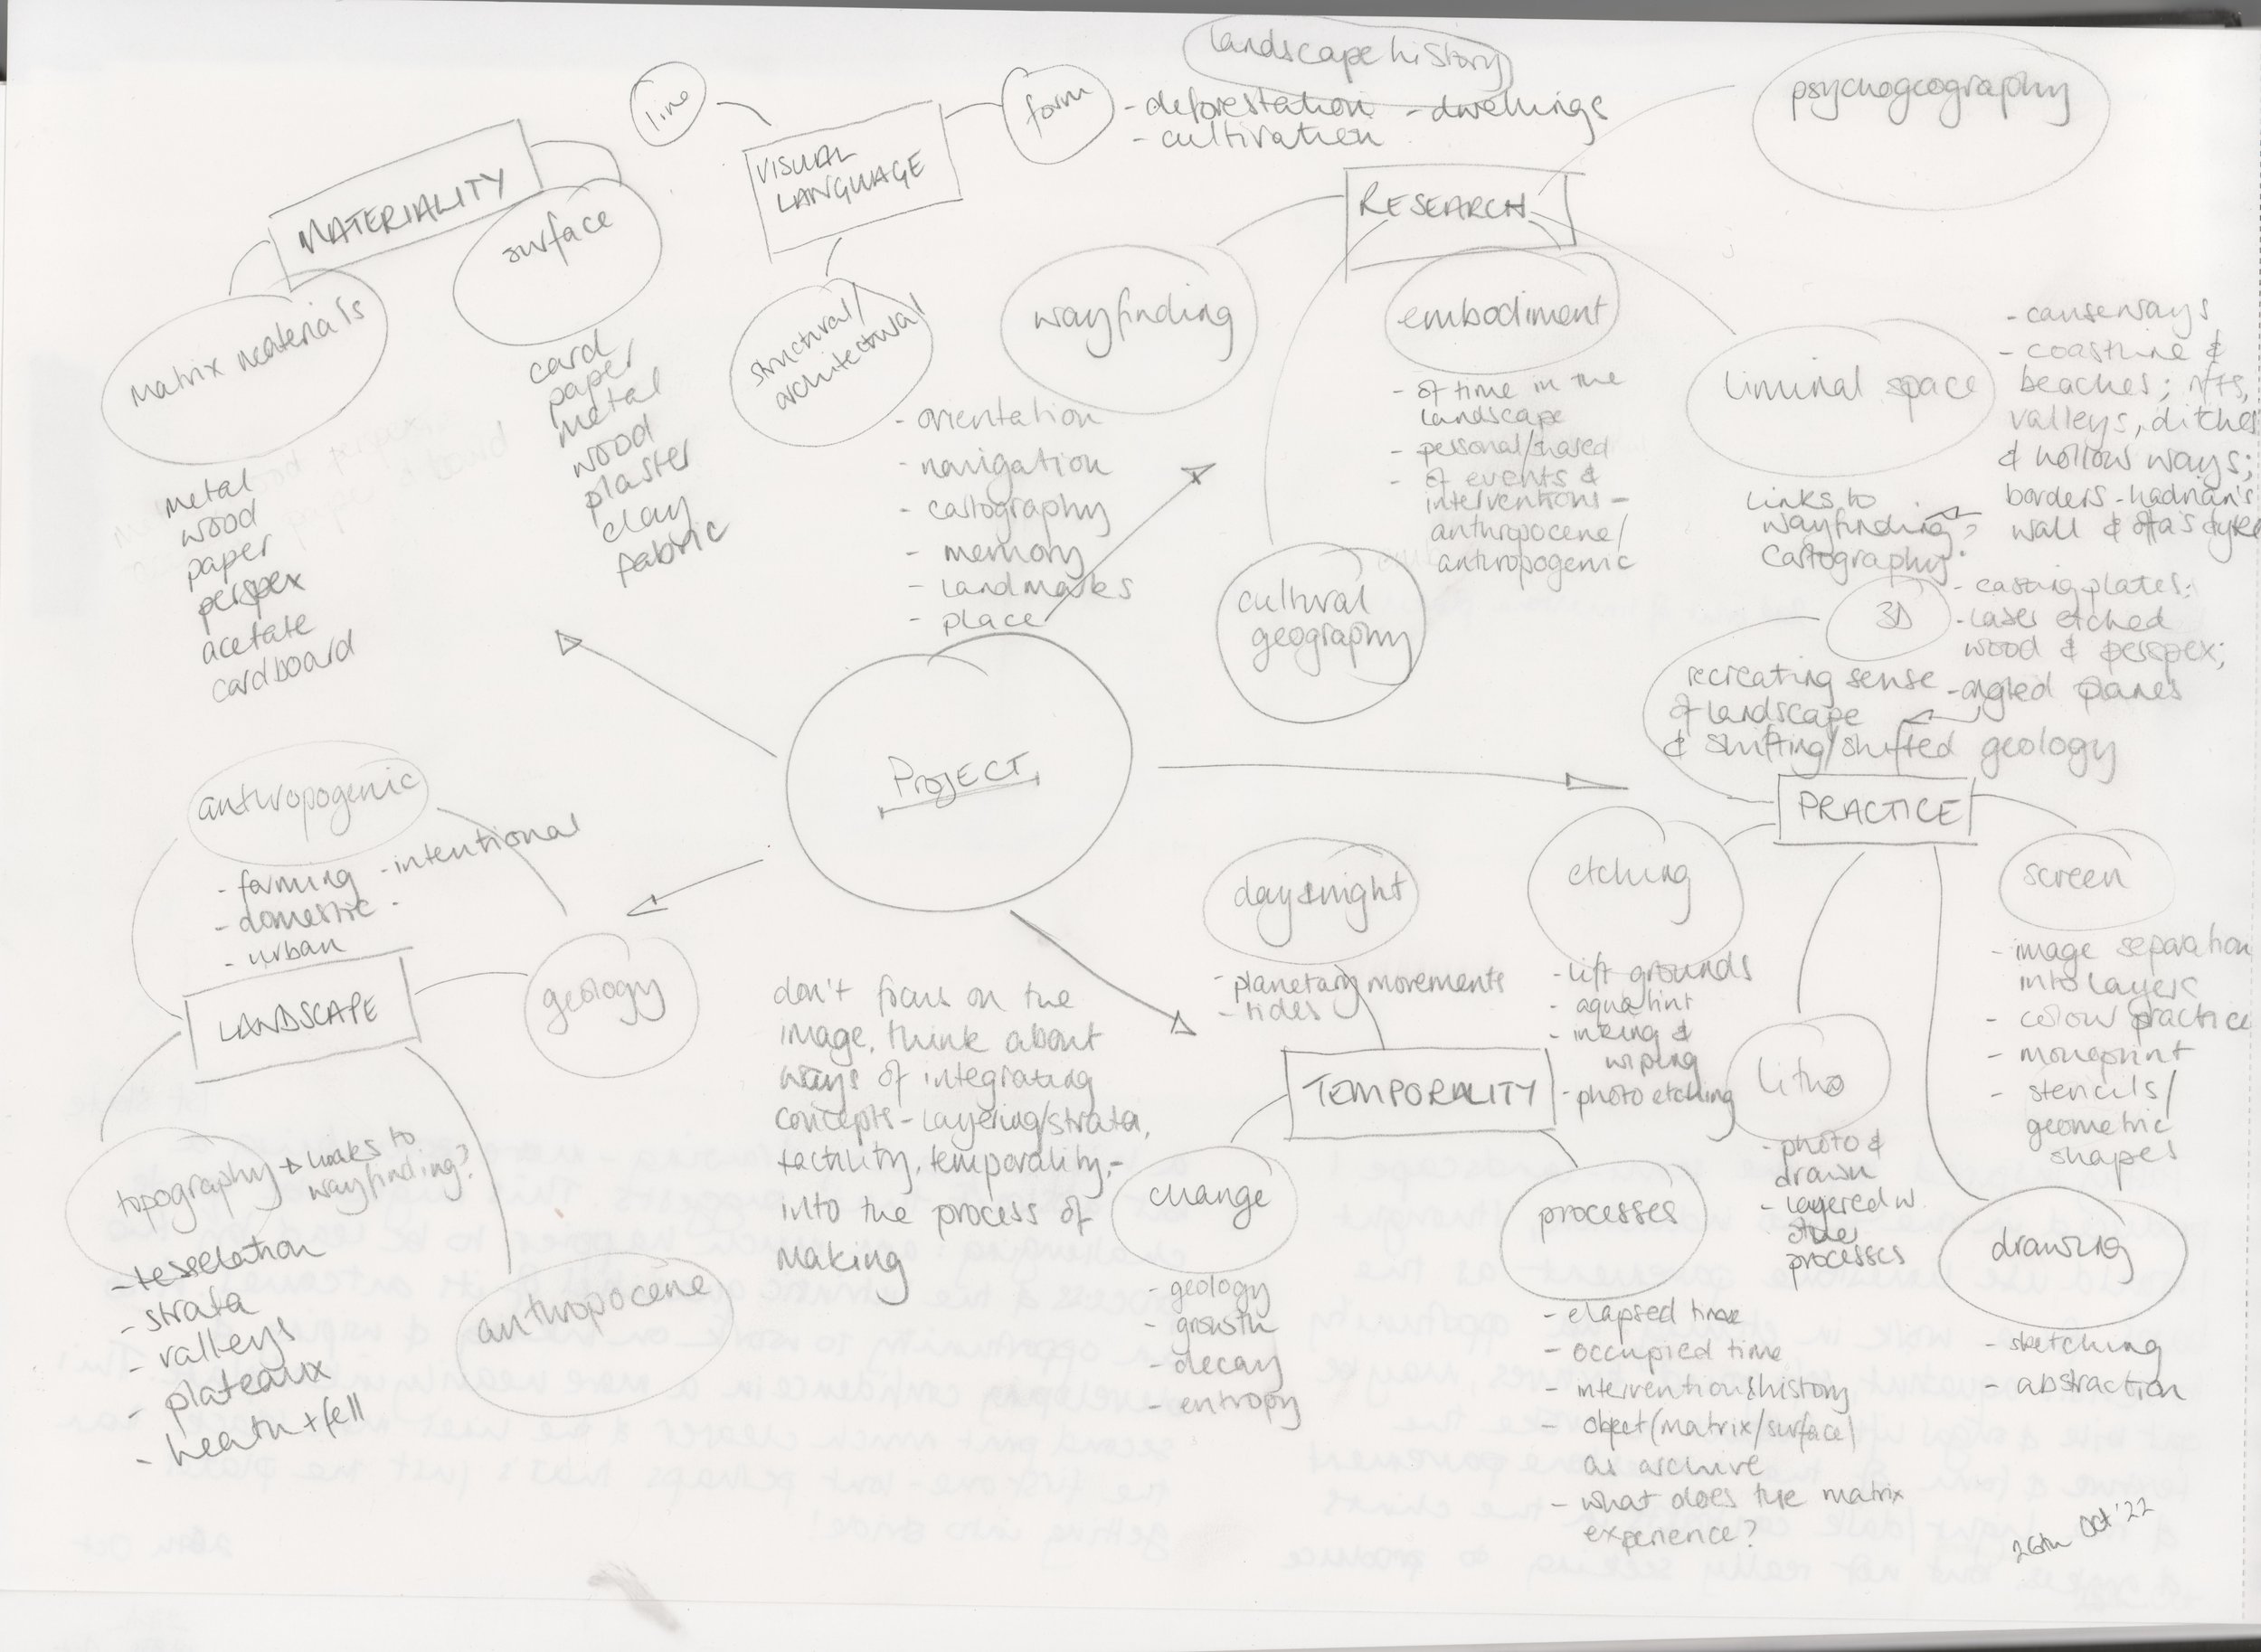 landscape history
- deforestation - dwellings
- cultivation
line
form
VISUAL
LANGUAGE
structural/
architectural
MATERIALITY
surface
card
paper
metal
wood
plaster
clay
fabric
matrix materials
metal
wood
paper
perspex
acetate
cardboard
RESEARCH
psychogeography
wayfinding
- orientation
- navigation
- cartography
- memory
- landmarks
- place
embodiment
- of time in the
landscape
- personal/shared
- of events &
interventions -
anthropocene/
anthropogenic
cultural
geography
liminal space
- causeways
- coastline &
beaches; rifts,
valleys, ditches
& hollow ways;
borders - hadrian's
wall & offa's dyke
links to
wayfinding?
cartography.
PROJECT
3D
- casting plates;
- laser etched
wood & perspex;
- angled planes
recreating sense
of landscape
& shifting/shifted geology
PRACTICE
etching
- lift grounds
- aquatint
- inking &
wiping
- photo etching
litho
- photo &
drawn
- layered w.
other
processes
screen
- image separation
into layers
- colour practice
- monoprint
- stencils/
geometric
shapes
drawing
- sketching
- abstraction
anthropogenic
- farming - intentional
- domestic -
- urban
LANDSCAPE
geology
topography → links to
wayfinding?
- tesselation
- strata
- valleys
- plateaux
- heath + fell
anthropocene
don't focus on the
image, think about
ways of integrating
concepts - layering/strata,
tactility, temporality, -
into the process of
making
day & night
- planetary movements
- tides
TEMPORALITY
change
- geology
- growth
- decay
- entropy
processes
- elapsed time
- occupied time
- intervention & history
- object (matrix/surface)
as archive
- what does the matrix
experience?
26th Oct '22